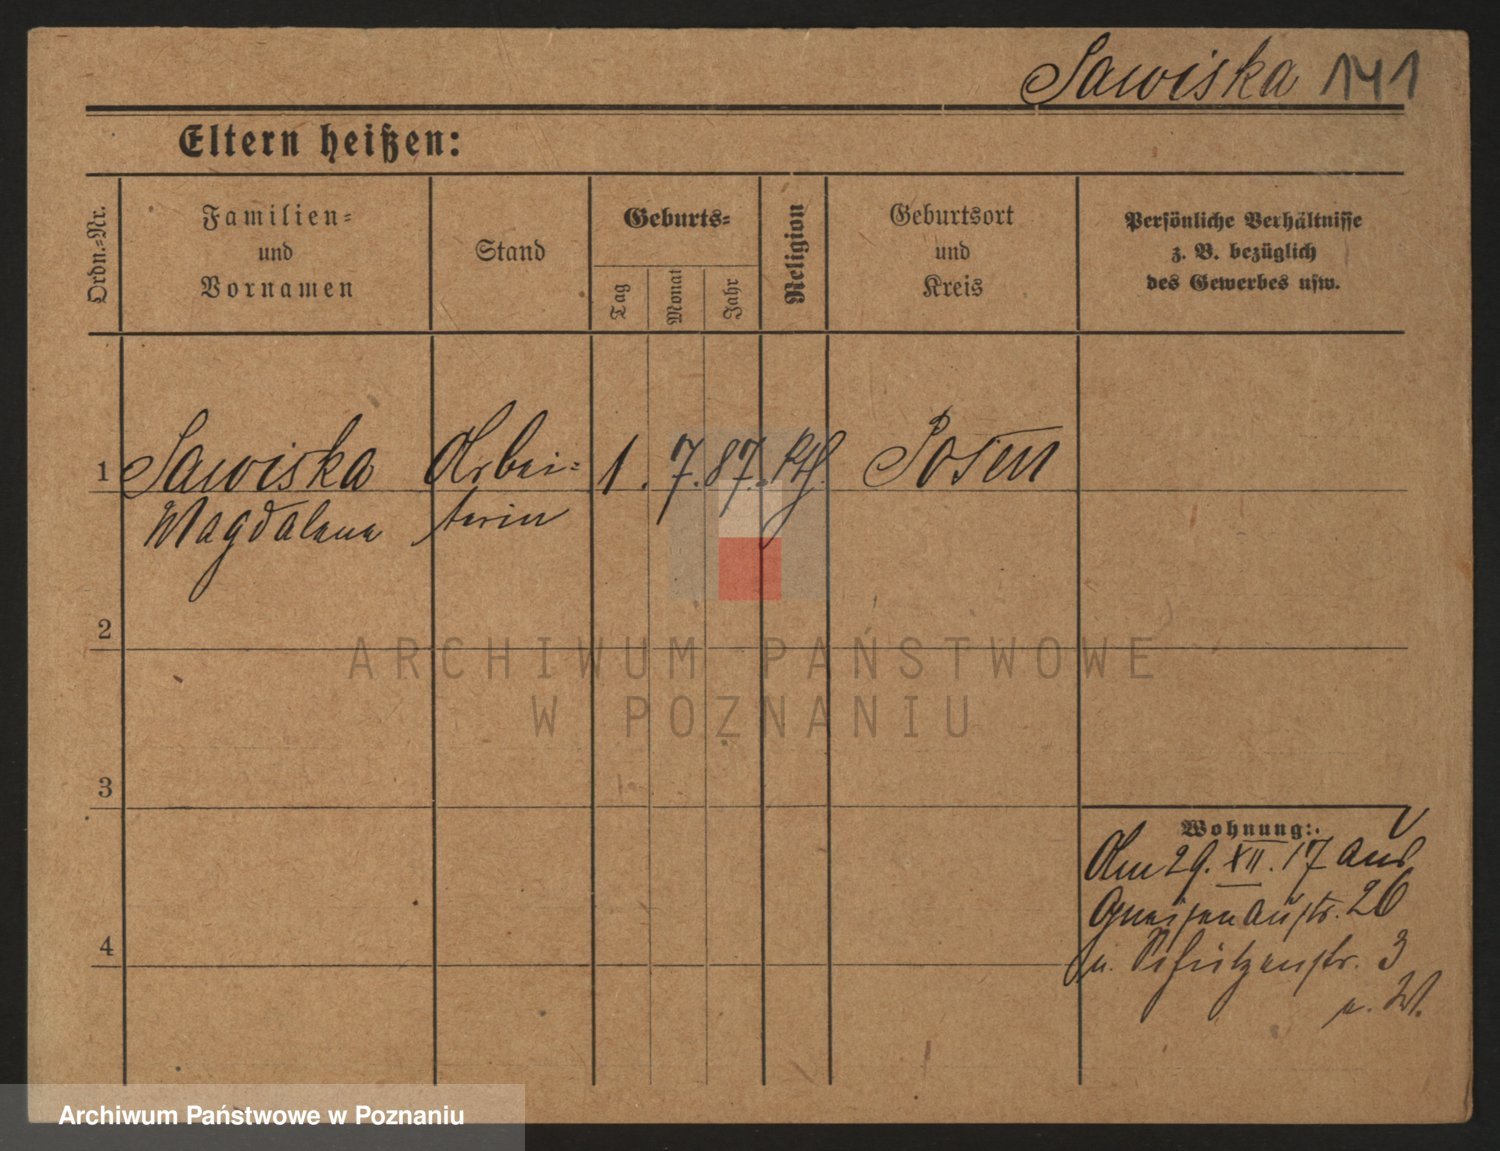 Sawiska 141
Eltern heißen:
Ordn.-Nr.
Familien-
und
Vornamen
Stand
Geburts-
Tag
Monat
Jahr
Religion
Geburtsort
und
Kreis
Persönliche Verhältnisse
z. B. bezüglich
des Gewerbes usw.
1 Sawiska Arbei- 1. 7. 87. kth. Posen
Magdalena terin
2
3
4
Wohnung:
Am 29. XII. 17 aus
Gneisenaustr. 26
n. Schützenstr. 3
ARCHIWUM PAŃSTWOWE
W POZNANIU
Archiwum Państwowe w Poznaniu